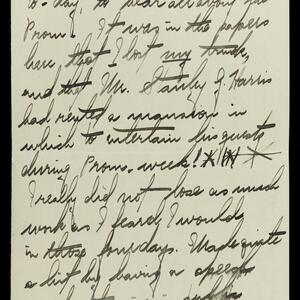 to-day, to hear all about the
Prom! It was in the papers
here, that I lost my trunk,
and that Mr. Stanly J. Harris
had rented a mansion in
which to entertain his guests
during Prom-week!
I really did not lose as much
work as I feared I would
in those four days. Made quite
a hit by having a speech